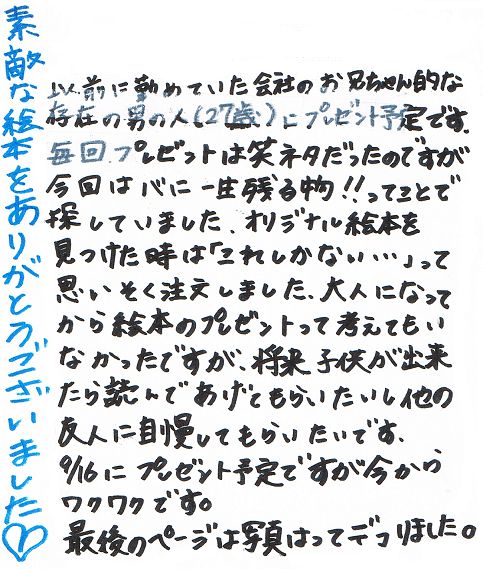 素敵な絵本をありがとうございました♡
以前に勤めていた会社のお兄ちゃん的な
存在の男の人(27歳)にプレゼント予定です。
毎回、プレゼントは笑ネタだったのですが
今回は心に一生残る物!!ってことで
探していました。オリジナル絵本を
見つけた時は「これしかない…」って
思いそく注文しました。大人になって
から絵本のプレゼントって考えてもい
なかったですが、将来子供が出来
たら読んであげてもらいたいし他の
友人に自慢してもらいたいです。
9/16にプレゼント予定ですが今から
ワクワクです。
最後のページは写真はってデコりました。